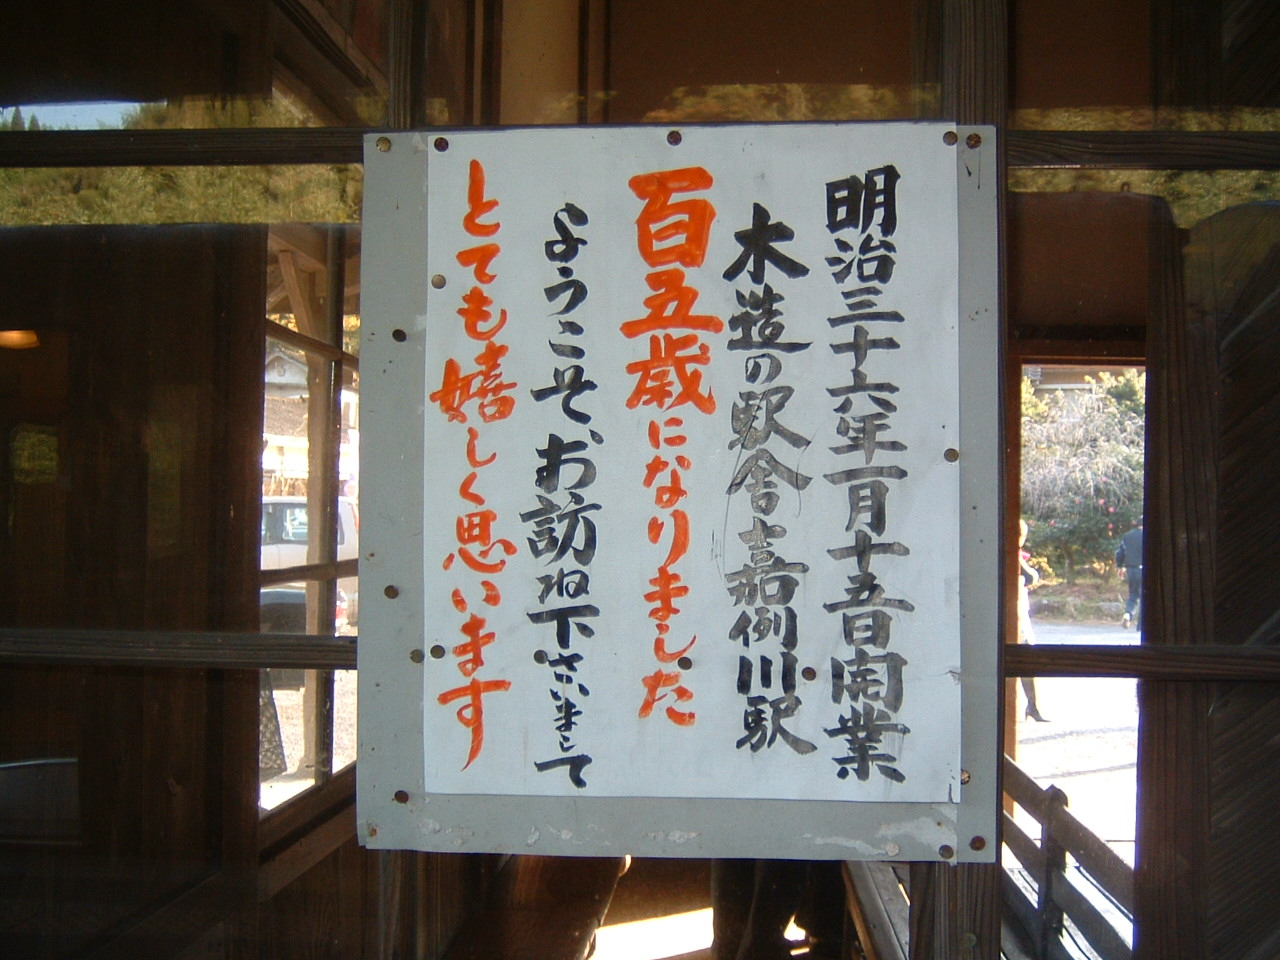 明治三十六年一月十五日開業
木造の駅舎嘉例川駅
百五歳になりました
ようこそ、お訪ね下さいまして
とても嬉しく思います